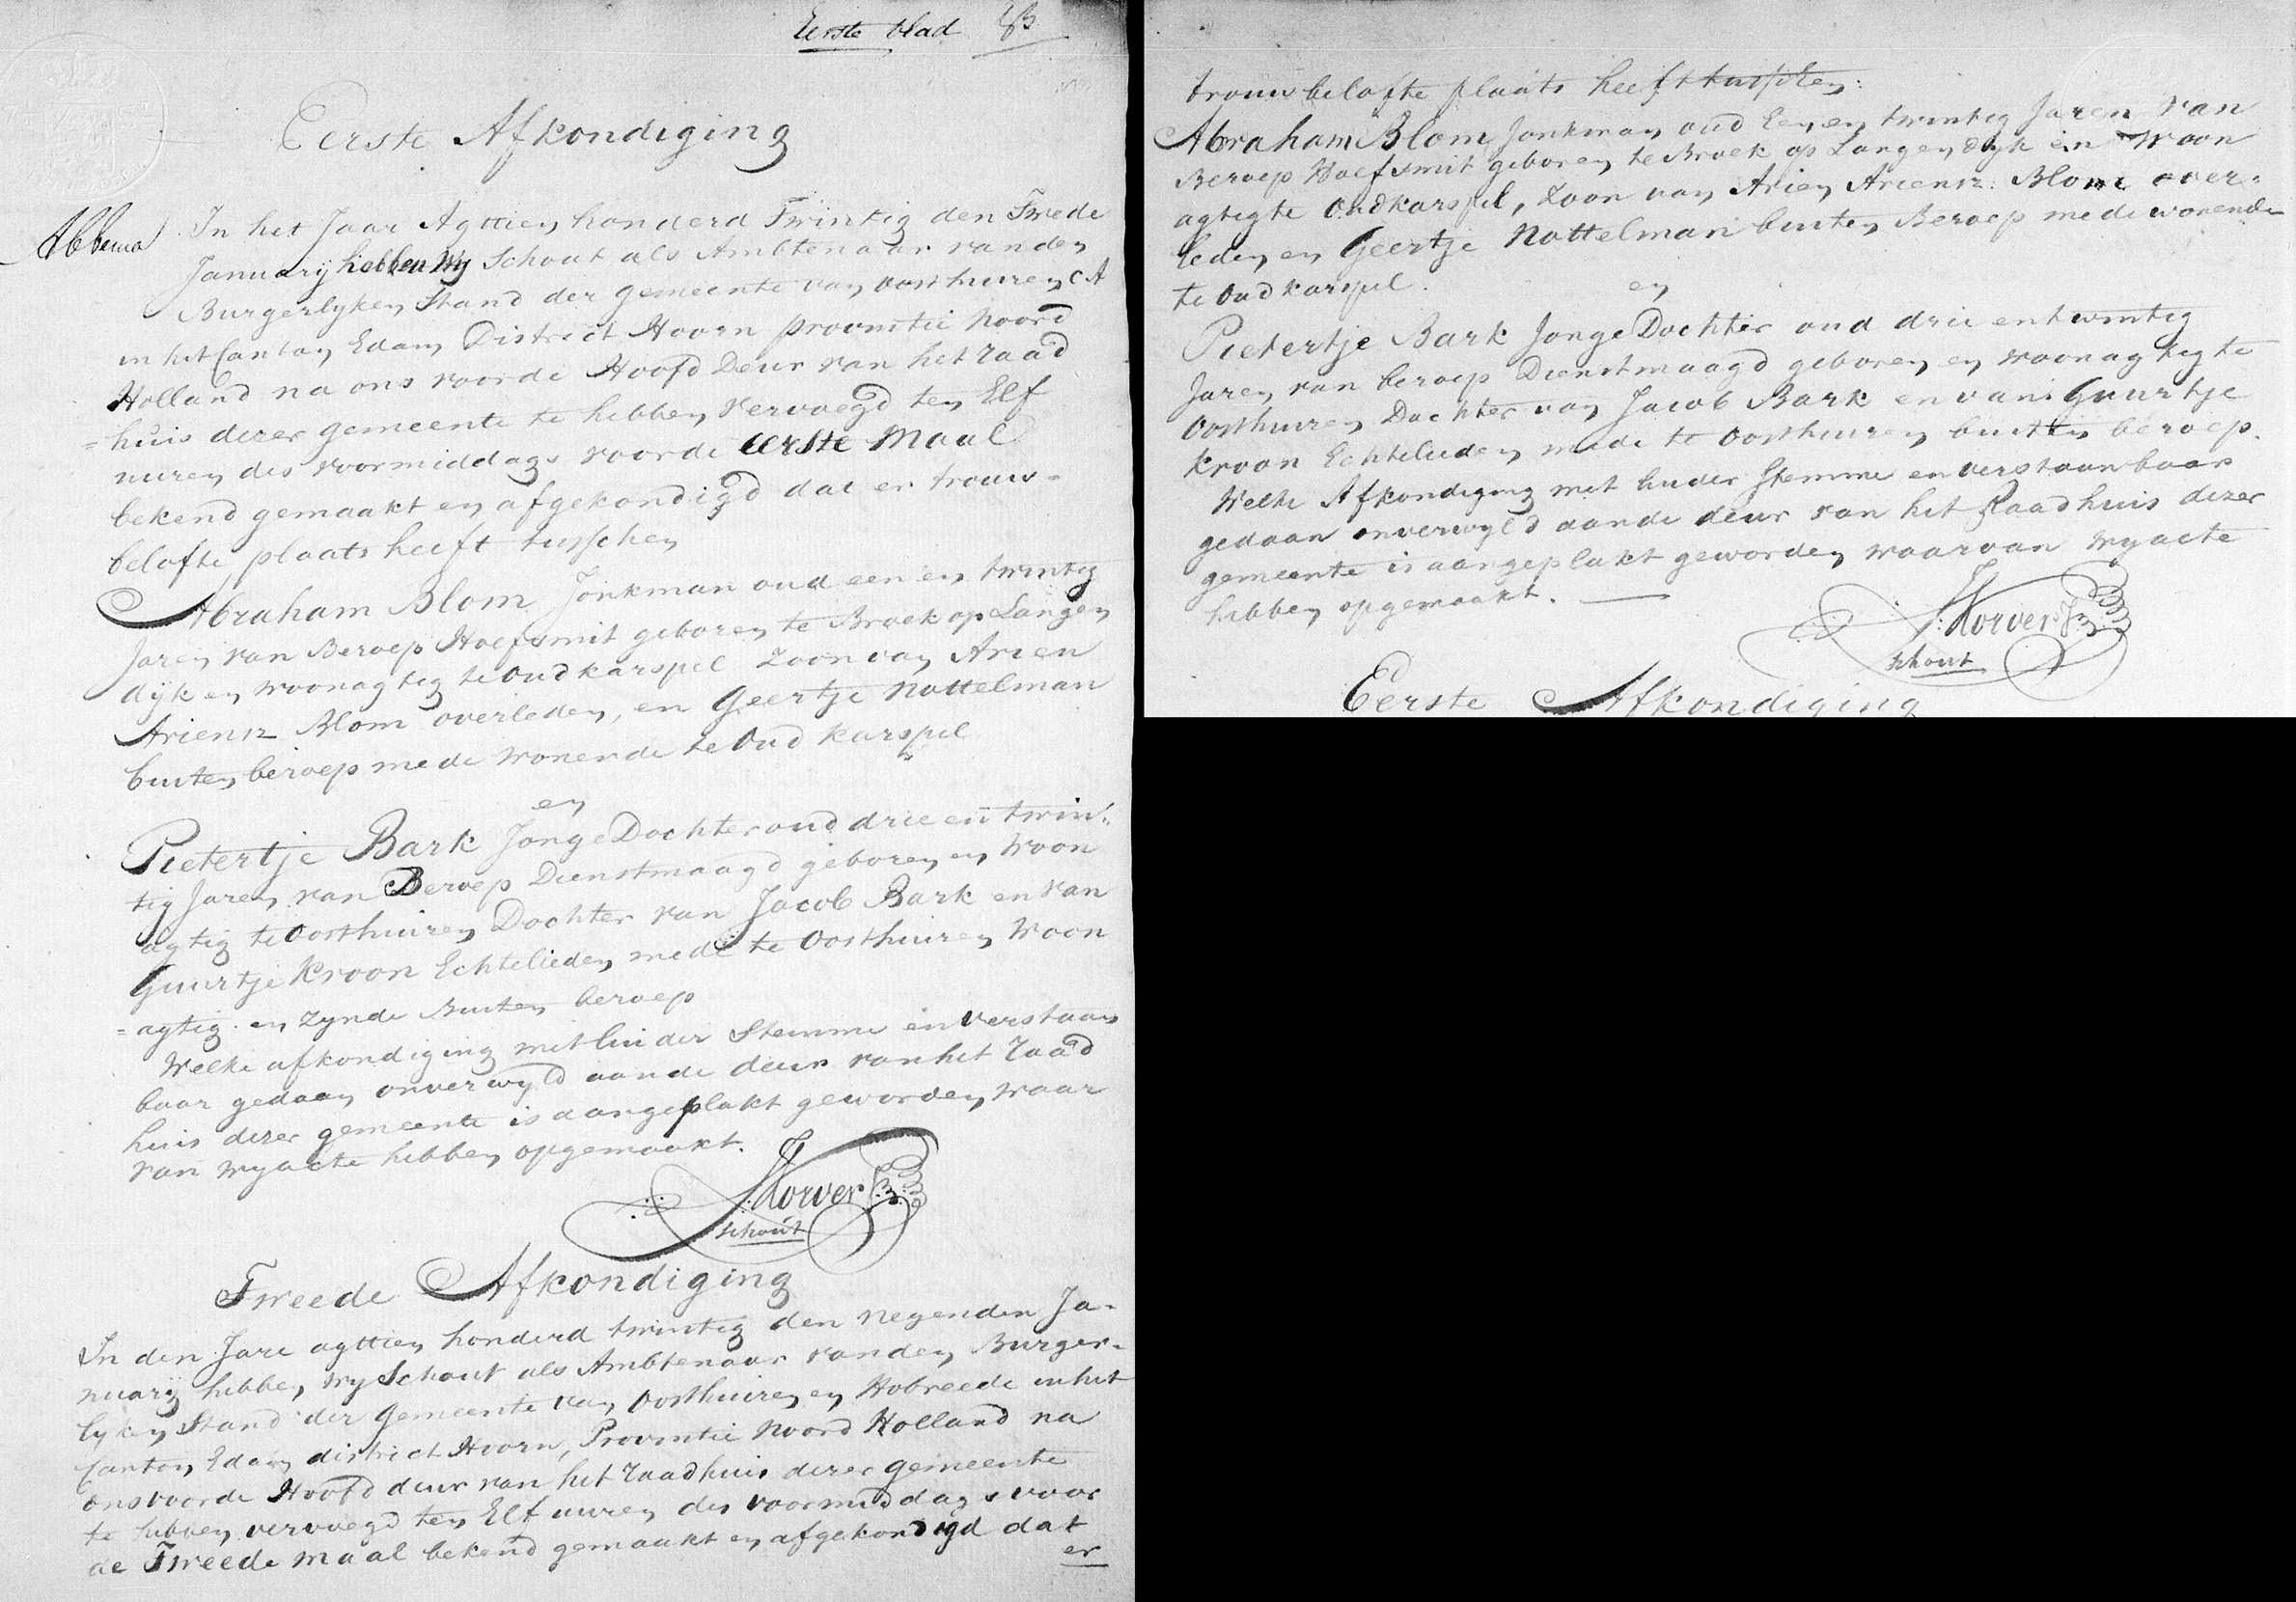 Eerste blad
Eerste Afkondiging
Abbema
In het Jaar Agttien honderd Twintig den Twede
Januarij hebben Wy Schout als Ambtenaar van den
Burgerlyken Stand der gemeente van Oosthuizen CA
in het Canton Edam District Hoorn provintie Noord
Holland na ons voorde Hoofd Deur van het raad
=huis dezer gemeente te hebben vervoegd ten Elf
uuren des voormiddags voorde eerste Maal
bekend gemaakt en afgekondigd dat er trouw=
belofte plaats heeft tusschen
Abraham Blom Jonkman oud een en twintig
Jaren van Beroep Hoefsmit geboren te Broek op Langen
dijk en woonagtig te Oudkarspel Zoon van Arien
Ariensz Blom overleden, en Geertje Nottelman
buiten beroep mede wonende te Oud karspel
en
Pietertje Bark Jonge Dochter oud drie en twin=
tig Jaren van Beroep Dienstmaagd geboren en Woon
agtig te Oosthuizen Dochter van Jacob Bark en van
Guurtje Kroon Echtelieden mede te Oosthuizen Woon
=agtig en zynde Buiten beroep
Welke afkondiging met luider Stemme en verstaan
baar gedaan onverwyld aande deur van het raad
huis dezer gemeente is aangeplakt geworden, waar
van wy acte hebben opgemaakt.
Korver
Schout
Tweede Afkondiging
In den Jare agttien honderd twintig den negenden Ja=
nuarij hebben, wy Schout als Ambtenaar vanden Burger=
lyken Stand der gemeente van Oosthuizen en Hobreede in het
Canton Edam district Hoorn, Provintie Noord Holland na
ons voorde Hoofd deur van het raadhuis dezer gemeente
te hebben vervoegd ten Elf uuren des voormiddags voor
de Tweede maal bekend gemaakt en afgekondigd dat
er
trouwbelofte plaats heeft tusschen:
Abraham Blom Jonkman oud Een en twintig Jaren van
Beroep Hoefsmit geboren te Broek op Langendyk en Woon
agtigte Oudkarspel, Zoon van Arien Ariensz: Blom over=
leden en Geertje Nottelman buiten Beroep mede wonende
te Oudkarspel.
en
Pietertje Bark Jonge Dochter oud drie en twintig
Jaren van beroep Dienstmaagd geboren en woonagtig te
Oosthuizen Dochter van Jacob Bark en van Guurtje
Kroon Echtelieden mede te Oosthuizen buiten beroep.
Welke Afkondiging met luider Stemme en verstaanbaar
gedaan onverwyld aande deur van het Raadhuis dezer
gemeente is aangeplakt geworden waarvan wy acte
hebben opgemaakt.
Korver
Schout
Eerste Afkondiging